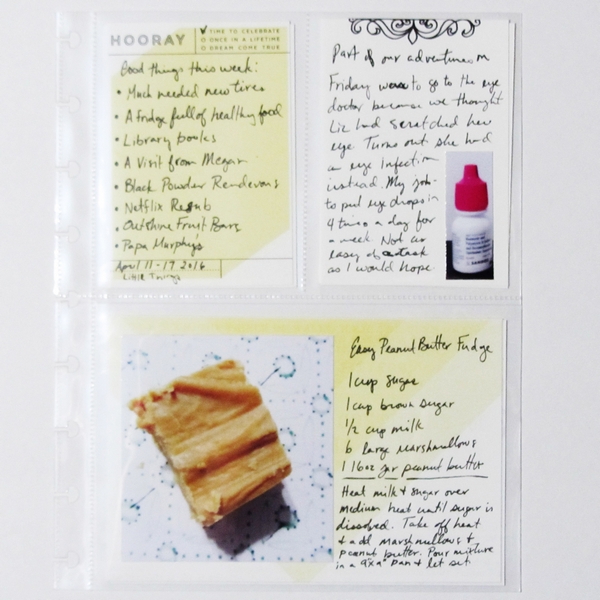 HOORAY
TIME TO CELEBRATE
ONCE IN A LIFETIME
DREAM COME TRUE
Good things this week:
• Much needed new tires
• A fridge full of healthy food
• Library books
• A Visit from Megan
• Black Powder Rendevous
• Netflix Resub
• Outshine Fruit Bars
• Papa Murphys
April 11-17 2016
Little Things
Part of our adventures on
Friday was to go to the eye
doctor because we thought
Liz had scratched her
eye. Turns out she had
an eye infection
instead. My job-
to put eye drops in
4 times a day for
a week. Not as
easy of a task
as I would hope.
Easy Peanut Butter Fudge
1 cup sugar
1 cup brown sugar
1/2 cup milk
6 large marshmallows
1 16oz jar peanut butter
Heat milk & sugar over
medium heat until sugar is
dissolved. Take off heat
& add marshmallows &
peanut butter. Pour mixture
in a 9x9" pan & let set.